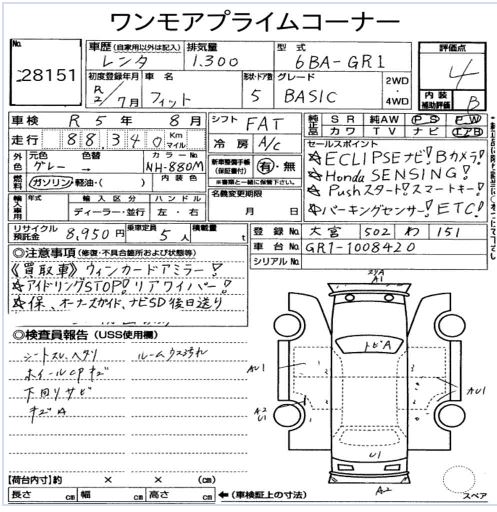 ワンモアプライムコーナー
No. 28151
車歴 (自家用以外は記入) レンタ 排気量 1.300 型式 6BA-GR1
評価点 4
初度登録年月 R2/7月 車名 フィット 形状・ドア数 5 グレード BASIC 2WD・4WD
内装補助評価 B
車検 R 5年 8月 シフト FAT
走行 88,340 Km マイル 冷房 A/C
純正品 SR 純AW PS PW カワ TV ナビ エアB
外色 元色 グレー→ 色替 カラーNo. NH-880M 内装色
新車整備手帳(保証書付) 有・無 ※書類と一緒に保管して下さい。
燃料 ガソリン・軽油・( )
セールスポイント
☆ECLIPSEナビ!Bカメラ!
☆Honda SENSING!
☆Pushスタート!スマートキー!
☆パーキングセンサー!ETC!
輸入車用 年式 輸入区分 ディーラー・並行 ハンドル 左・右
名義変更期限 月 日
リサイクル預託金 8,950円 乗車定員 5人 積載量 t
登録No. 大宮 502 わ 151
車台No. GR1-1008420
シリアルNo.
◎注意事項 (修復・不具合箇所および状態等)
《買取車》ウィンカードアミラー!
☆アイドリングSTOP!リアワイパー!
☆保、オーナーズガイド、ナビSD後日送り
◎検査員報告 (USS使用欄)
シートスレ、ヘタリ ルームウス汚れ
ホイールCPキズ
下回りサビ
キズA
A1
トビA
AU1
AU1
A2
U1
U1
A2
スペア
【荷台内寸】約 × × (cm)
長さ cm 幅 cm 高さ cm ←(車検証上の寸法)